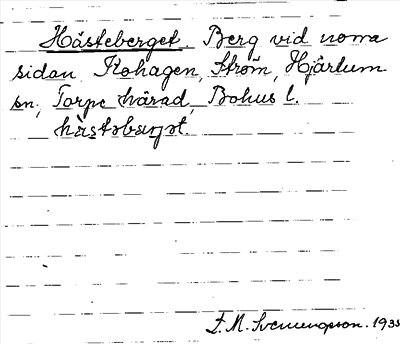 Hästeberget. Berg vid norra
sidan Kohagen, Ström, Hjärtum
sn, Torpe härad, Bohus l.
hästəbærjət.
F. M. Svenungsson. 1933